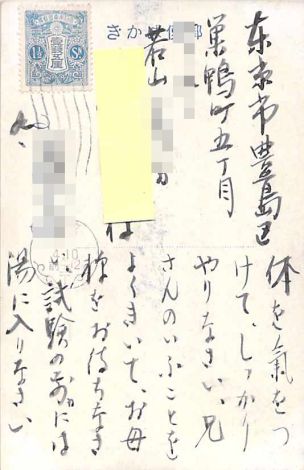 東京市豊島区
巣鴨町五丁目
若山
様
体を氣をつ
けて、しっかり
やりなさい、兄
さんのいふことを
よくきいて、お母
様をお待ちなさ
い、試験の前には
湯に入りなさい